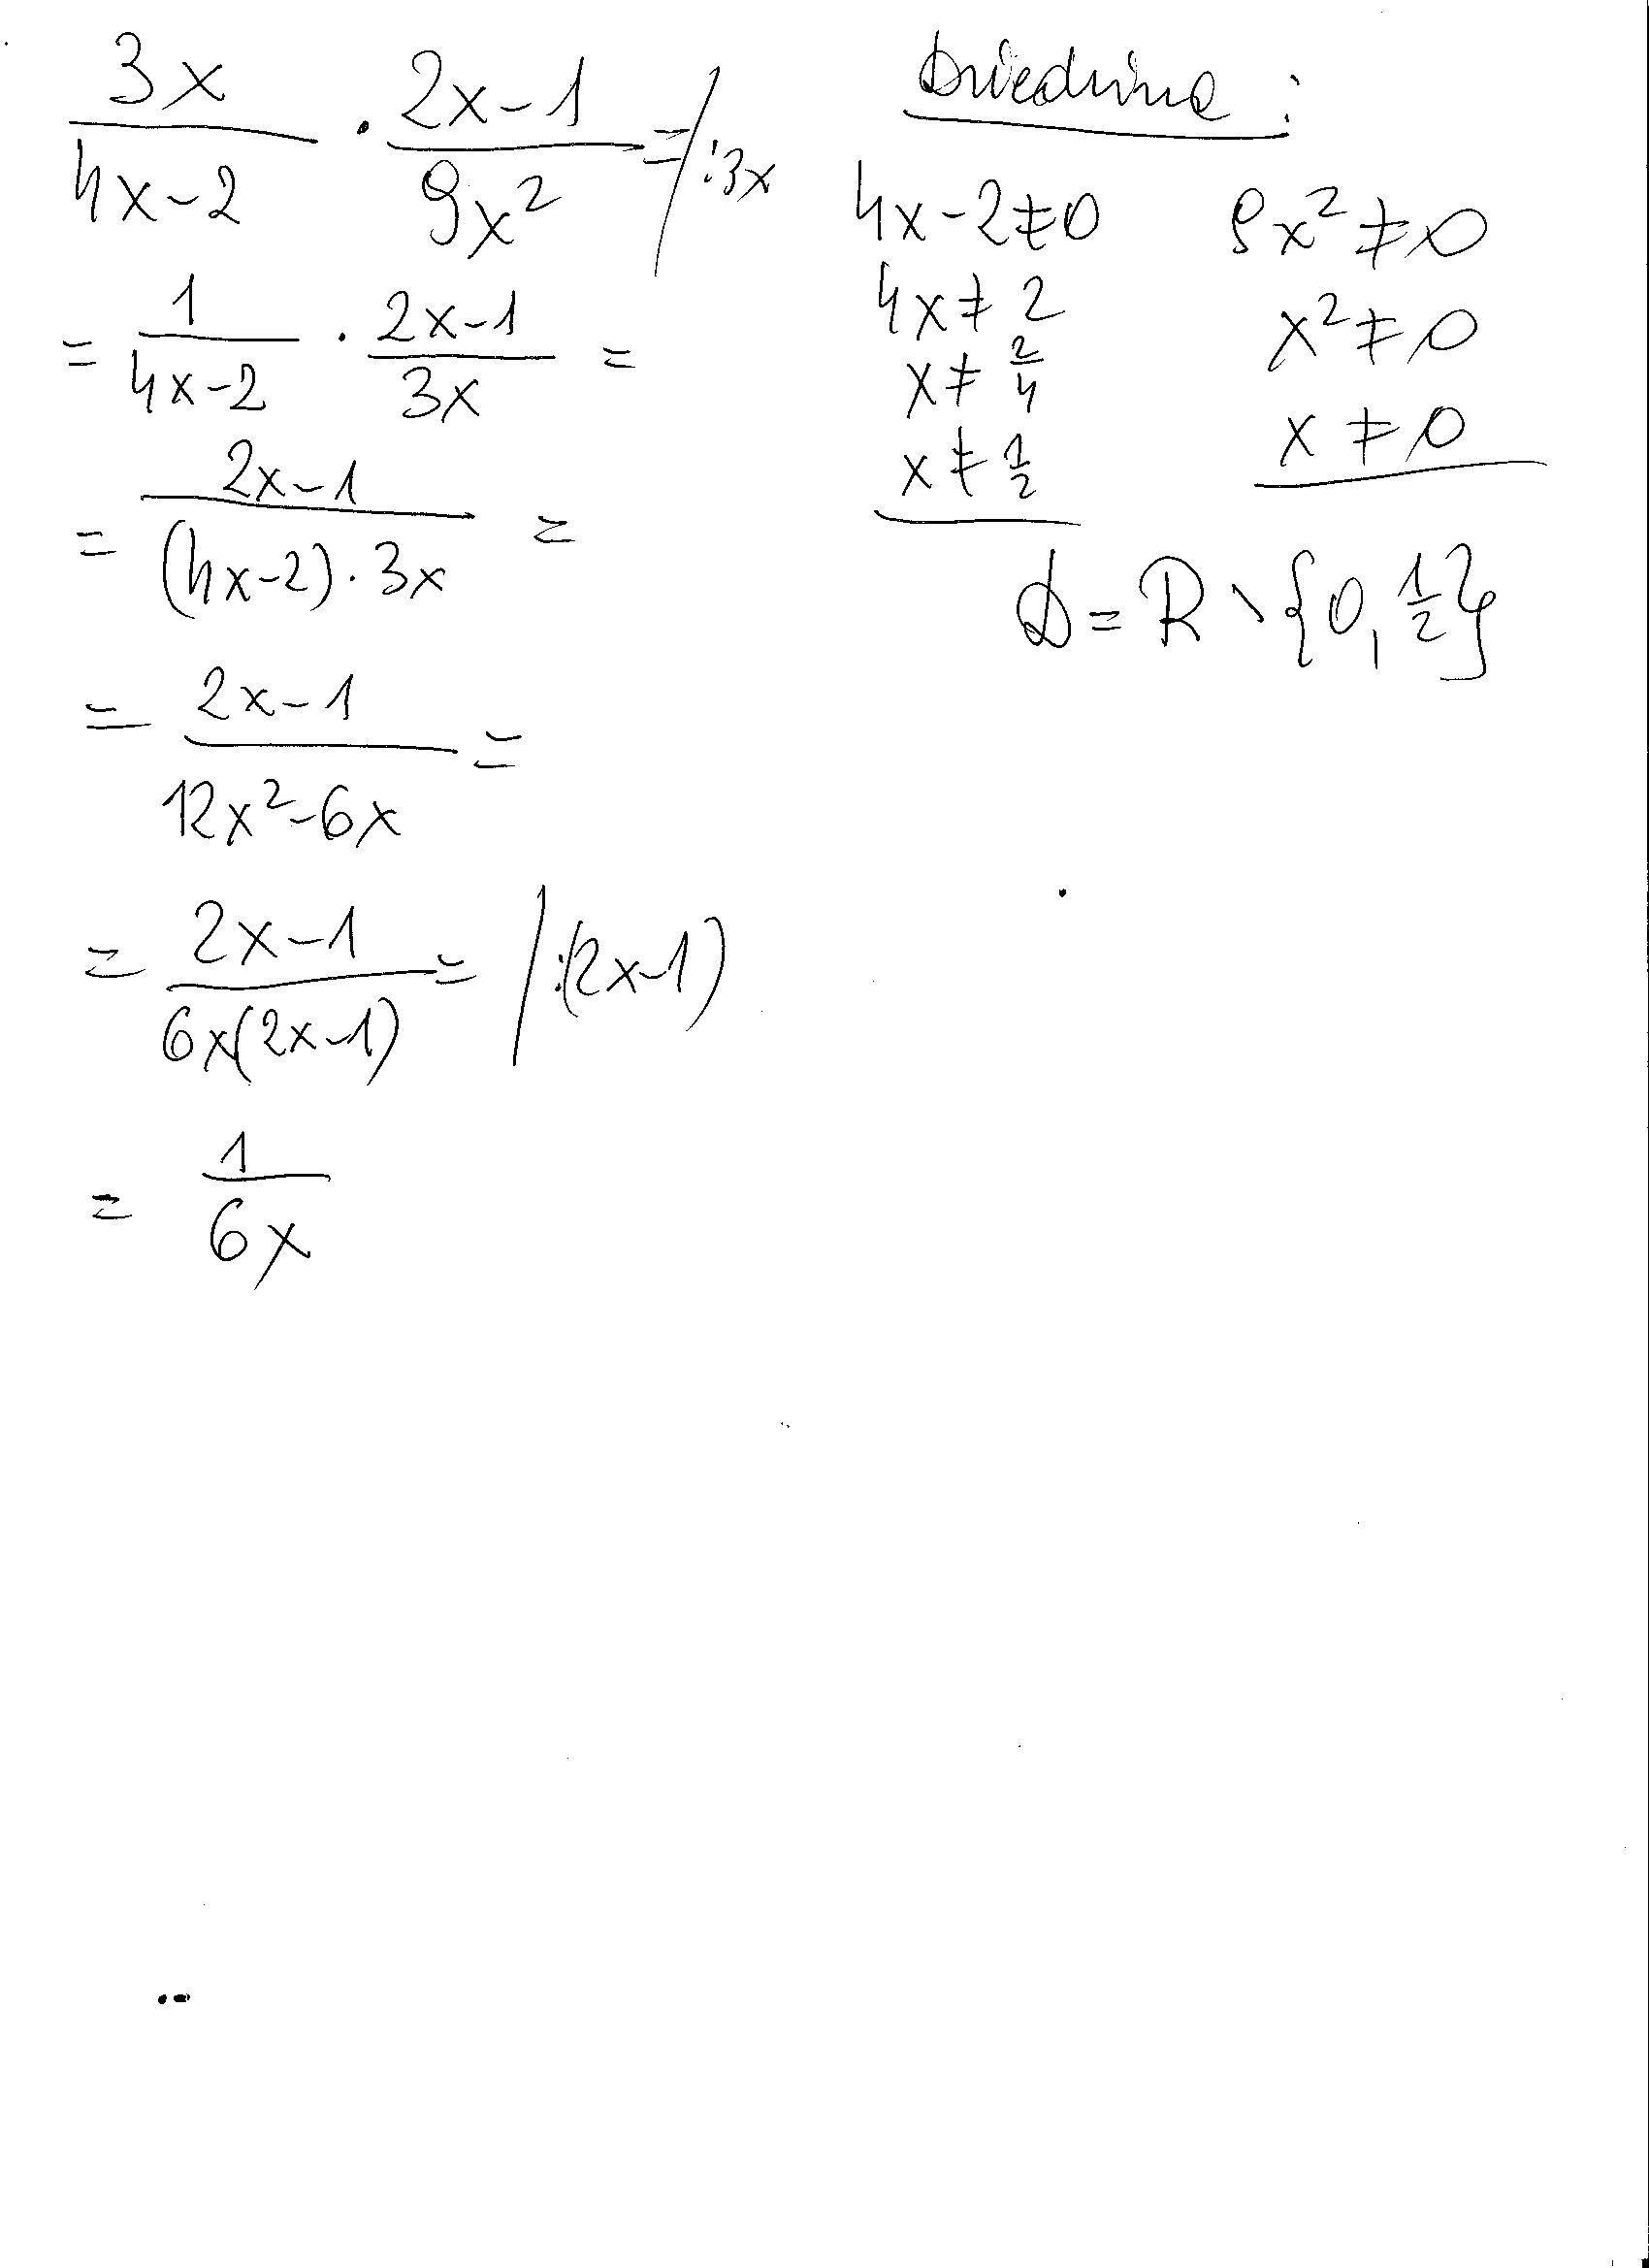 3x/(4x-2) · (2x-1)/(9x²) = / :3x
= 1/(4x-2) · (2x-1)/(3x) =
= (2x-1)/((4x-2)·3x) =
= (2x-1)/(12x²-6x) =
= (2x-1)/(6x(2x-1)) = / :(2x-1)
= 1/(6x)
Dziedzina:
4x-2≠0 9x²≠0
4x≠2 x²≠0
x≠2/4 x≠0
x≠1/2
D=R\{0,1/2}